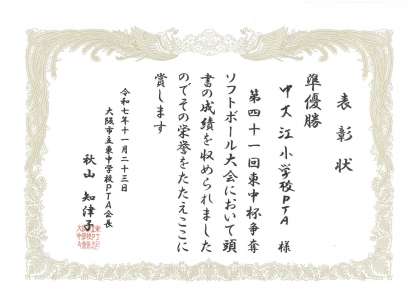 表彰状
準優勝
中大江小学校PTA 様
第四十一回東中杯争奪
ソフトボール大会において頭
書の成績を収められました
のでその栄誉をたたえここに
賞します
令和七年十一月二十三日
大阪市立東中学校PTA会長
秋山 知津子